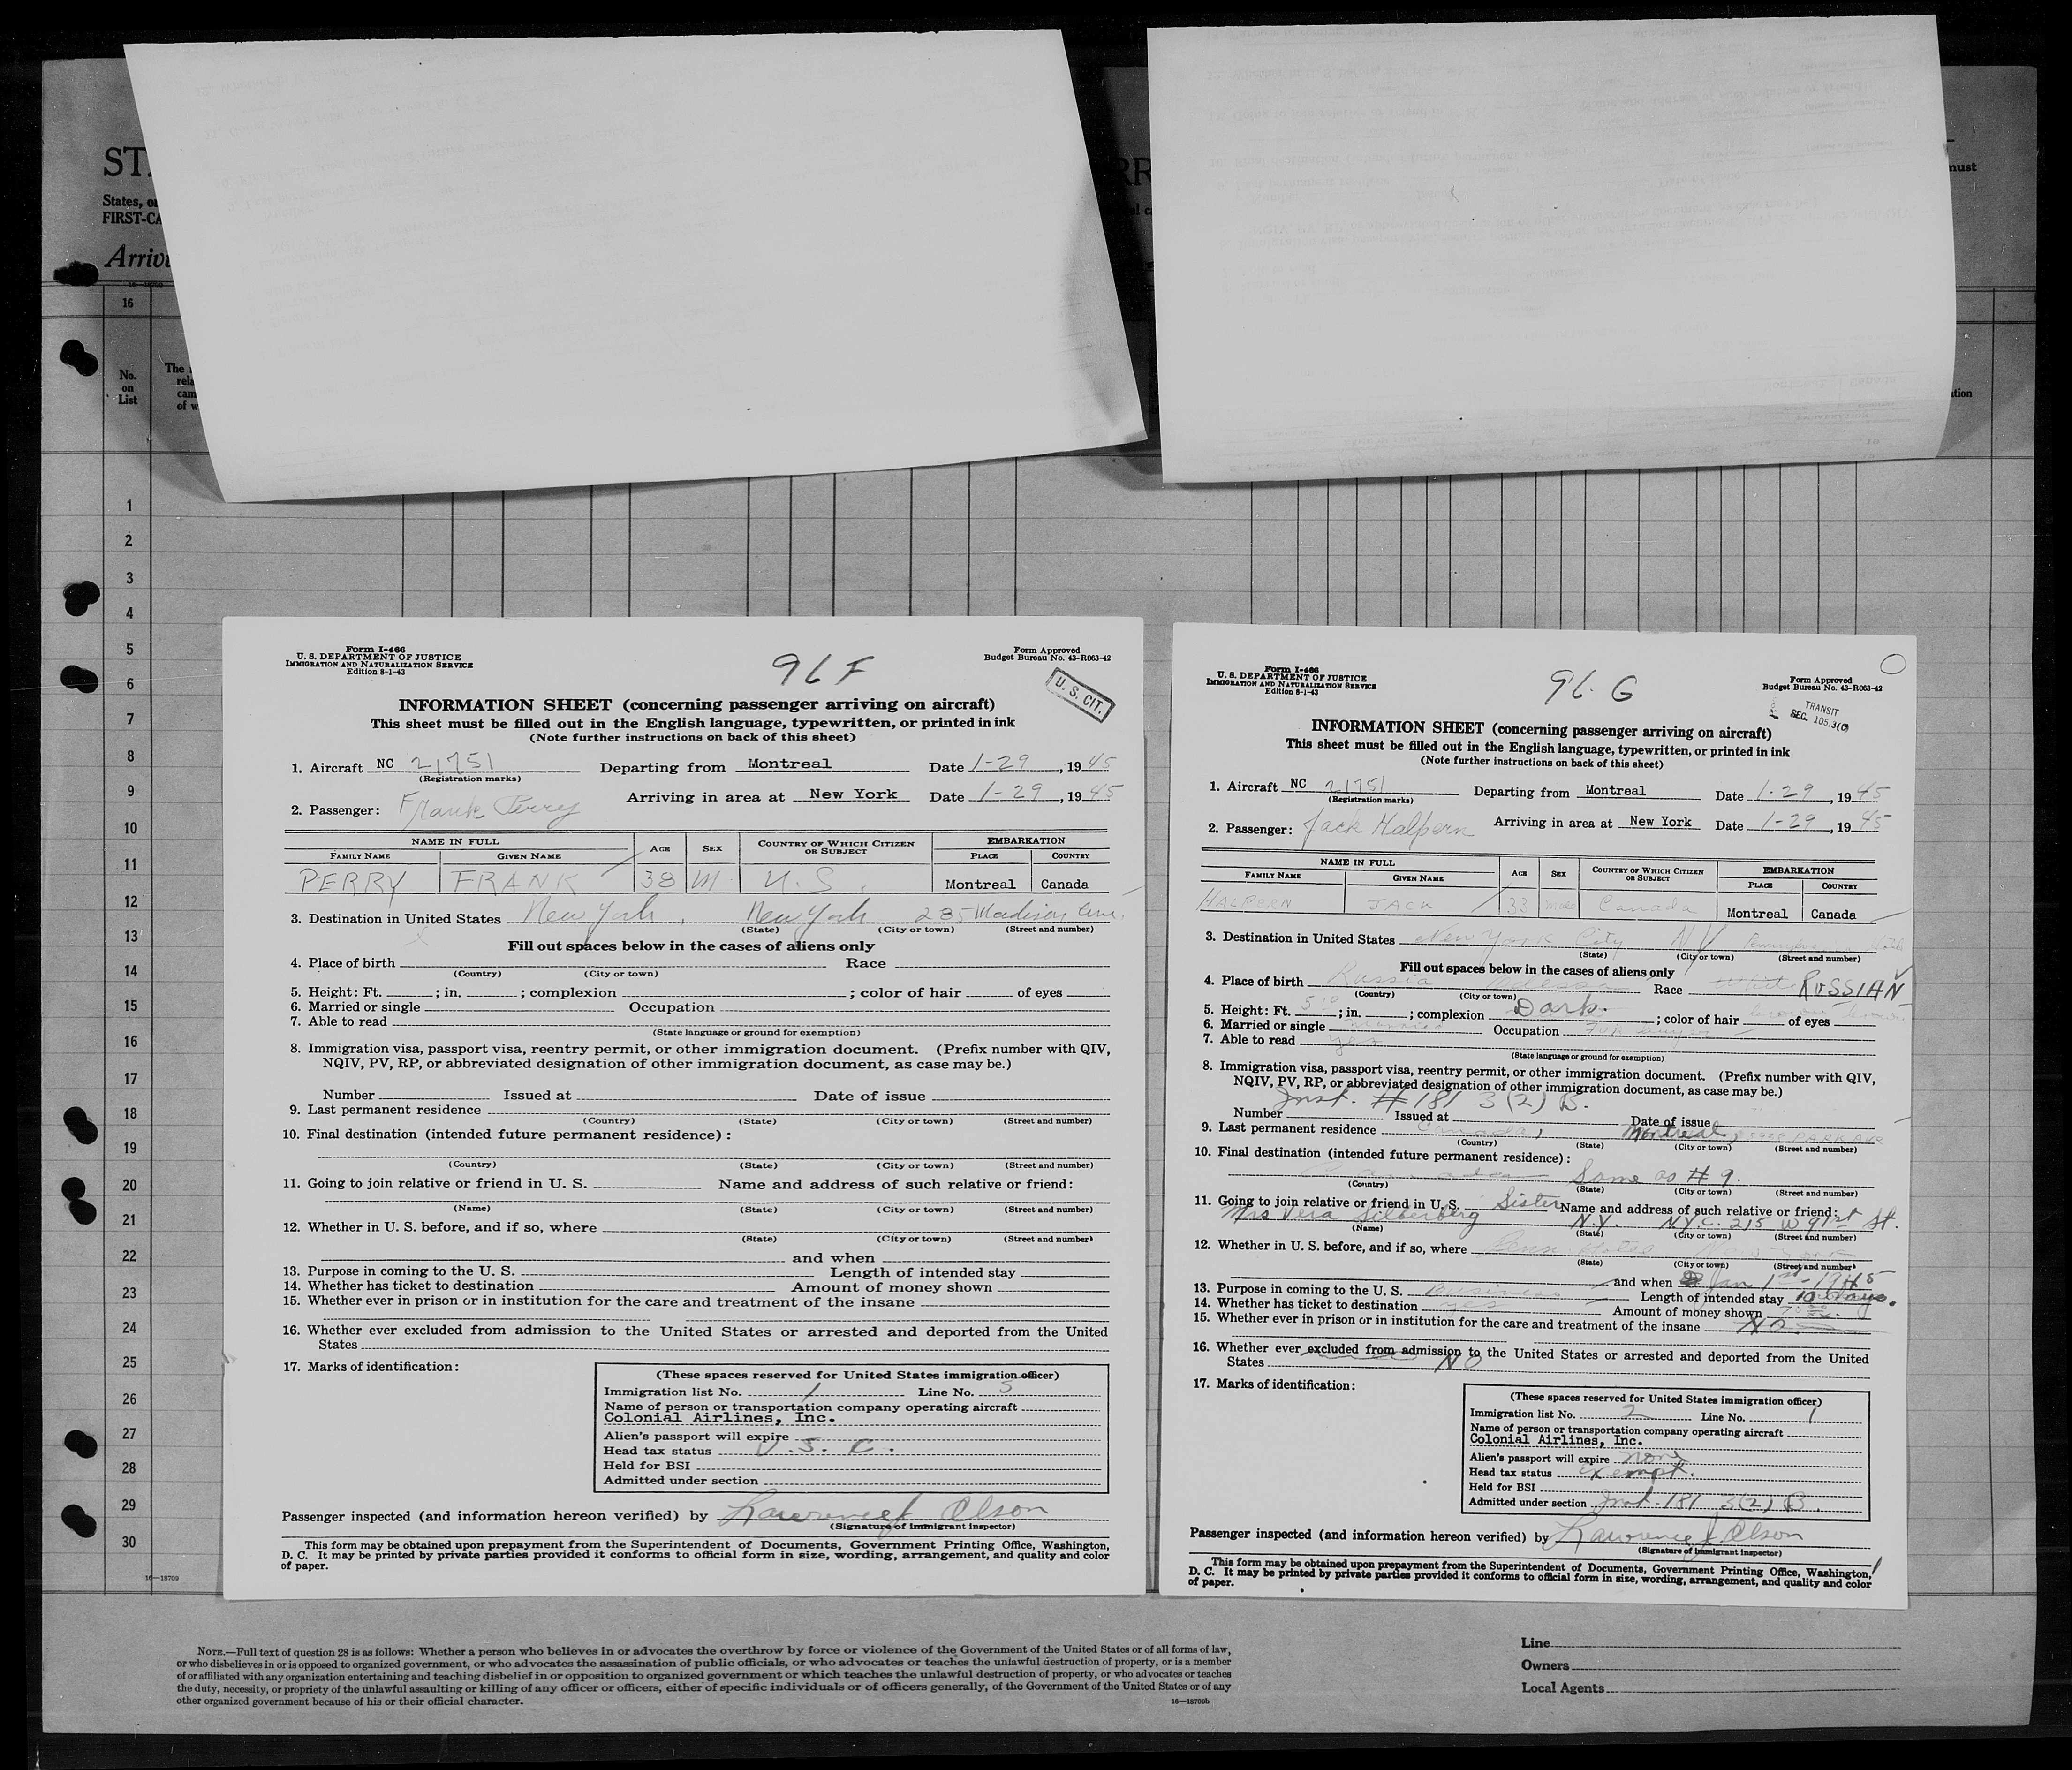 ST
RR
must
States, or
FIRST-CA
Arrivi
16—18709
16
No.
on
List
The
rela
cam
of w
ation
1
2
3
4
5
6
7
8
9
10
11
12
13
14
15
16
17
18
19
20
21
22
23
24
25
26
27
28
29
30
16—18709
Form I-466
U. S. DEPARTMENT OF JUSTICE
IMMIGRATION AND NATURALIZATION SERVICE
Edition 8-1-43
96 F
Form Approved
Budget Bureau No. 43-R063-42
U. S. CIT.
INFORMATION SHEET (concerning passenger arriving on aircraft)
This sheet must be filled out in the English language, typewritten, or printed in ink
(Note further instructions on back of this sheet)
1. Aircraft NC 21751 Departing from Montreal Date 1-29, 1945
(Registration marks)
Arriving in area at New York Date 1-29, 1945
2. Passenger: Frank Perry
NAME IN FULL AGE SEX COUNTRY OF WHICH CITIZEN OR SUBJECT EMBARKATION
FAMILY NAME GIVEN NAME PLACE COUNTRY
PERRY FRANK 38 M U.S. Montreal Canada
3. Destination in United States New York. New York 285 Madison Ave.
(State) (City or town) (Street and number)
Fill out spaces below in the cases of aliens only
4. Place of birth Race
(Country) (City or town)
5. Height: Ft. ; in. ; complexion ; color of hair of eyes
6. Married or single Occupation
7. Able to read
(State language or ground for exemption)
8. Immigration visa, passport visa, reentry permit, or other immigration document. (Prefix number with QIV,
NQIV, PV, RP, or abbreviated designation of other immigration document, as case may be.)
Number Issued at Date of issue
9. Last permanent residence
(Country) (State) (City or town) (Street and number)
10. Final destination (intended future permanent residence):
(Country) (State) (City or town) (Street and number)
11. Going to join relative or friend in U. S. Name and address of such relative or friend:
(Name) (State) (City or town) (Street and number)
12. Whether in U. S. before, and if so, where
(State) (City or town) (Street and number)
and when
13. Purpose in coming to the U. S. Length of intended stay
14. Whether has ticket to destination Amount of money shown
15. Whether ever in prison or in institution for the care and treatment of the insane
16. Whether ever excluded from admission to the United States or arrested and deported from the United
States
17. Marks of identification:
(These spaces reserved for United States immigration officer)
Immigration list No. 1 Line No. 5
Name of person or transportation company operating aircraft
Colonial Airlines, Inc.
Alien's passport will expire
Head tax status U.S.C.
Held for BSI
Admitted under section
Passenger inspected (and information hereon verified) by Lawrence J Olson
(Signature of immigrant inspector)
This form may be obtained upon prepayment from the Superintendent of Documents, Government Printing Office, Washington,
D. C. It may be printed by private parties provided it conforms to official form in size, wording, arrangement, and quality and color
of paper.
Form I-466
U. S. DEPARTMENT OF JUSTICE
IMMIGRATION AND NATURALIZATION SERVICE
Edition 8-1-43
96. G
Form Approved
Budget Bureau No. 43-R063-42
TRANSIT
SEC. 105.3(c)
INFORMATION SHEET (concerning passenger arriving on aircraft)
This sheet must be filled out in the English language, typewritten, or printed in ink
(Note further instructions on back of this sheet)
1. Aircraft NC 21751 Departing from Montreal Date 1-29, 1945
(Registration marks)
2. Passenger: Jack Halpern Arriving in area at New York Date 1-29, 1945
NAME IN FULL AGE SEX COUNTRY OF WHICH CITIZEN OR SUBJECT EMBARKATION
FAMILY NAME GIVEN NAME PLACE COUNTRY
HALPERN JACK 33 male Canada Montreal Canada
3. Destination in United States New York City N Y Pennsylvania Hotel
(State) (City or town) (Street and number)
Fill out spaces below in the cases of aliens only
4. Place of birth Russia Odessa Race White RUSSIAN
(Country) (City or town)
5. Height: Ft. 5 10 ; in. ; complexion Dark. ; color of hair brown of eyes brown
6. Married or single married Occupation Fur buyer
7. Able to read yes
(State language or ground for exemption)
8. Immigration visa, passport visa, reentry permit, or other immigration document. (Prefix number with QIV,
NQIV, PV, RP, or abbreviated designation of other immigration document, as case may be.)
Inst. # 181 3(2) B.
Number Issued at Date of issue
9. Last permanent residence Canada, Montreal, PARK AVE
(Country) (State) (City or town) (Street and number)
10. Final destination (intended future permanent residence):
Canada Same as # 9.
(Country) (State) (City or town) (Street and number)
11. Going to join relative or friend in U. S. Sister Name and address of such relative or friend:
Mrs Vera Silberberg N.Y. N.Y.C. 215 W 91st St.
(Name) (State) (City or town) (Street and number)
12. Whether in U. S. before, and if so, where Penn Hotel New York
(State) (City or town) (Street and number)
and when Jan 1st - 1945
13. Purpose in coming to the U. S. Business Length of intended stay 10 days.
14. Whether has ticket to destination yes Amount of money shown
15. Whether ever in prison or in institution for the care and treatment of the insane No
16. Whether ever excluded from admission to the United States or arrested and deported from the United
States NO
17. Marks of identification:
(These spaces reserved for United States immigration officer)
Immigration list No. 2 Line No. 1
Name of person or transportation company operating aircraft
Colonial Airlines, Inc.
Alien's passport will expire none
Head tax status exempt.
Held for BSI
Admitted under section Inst. 181 3(2) B.
Passenger inspected (and information hereon verified) by Lawrence J Olson
(Signature of immigrant inspector)
This form may be obtained upon prepayment from the Superintendent of Documents, Government Printing Office, Washington,
D. C. It may be printed by private parties provided it conforms to official form in size, wording, arrangement, and quality and color
of paper.
NOTE.—Full text of question 28 is as follows: Whether a person who believes in or advocates the overthrow by force or violence of the Government of the United States or of all forms of law,
or who disbelieves in or is opposed to organized government, or who advocates the assassination of public officials, or who advocates or teaches the unlawful destruction of property, or is a member
of or affiliated with any organization entertaining and teaching disbelief in or opposition to organized government or which teaches the unlawful destruction of property, or who advocates or teaches
the duty, necessity, or propriety of the unlawful assaulting or killing of any officer or officers, either of specific individuals or of officers generally, of the Government of the United States or of any
other organized government because of his or their official character.
16—18709b
Line
Owners
Local Agents